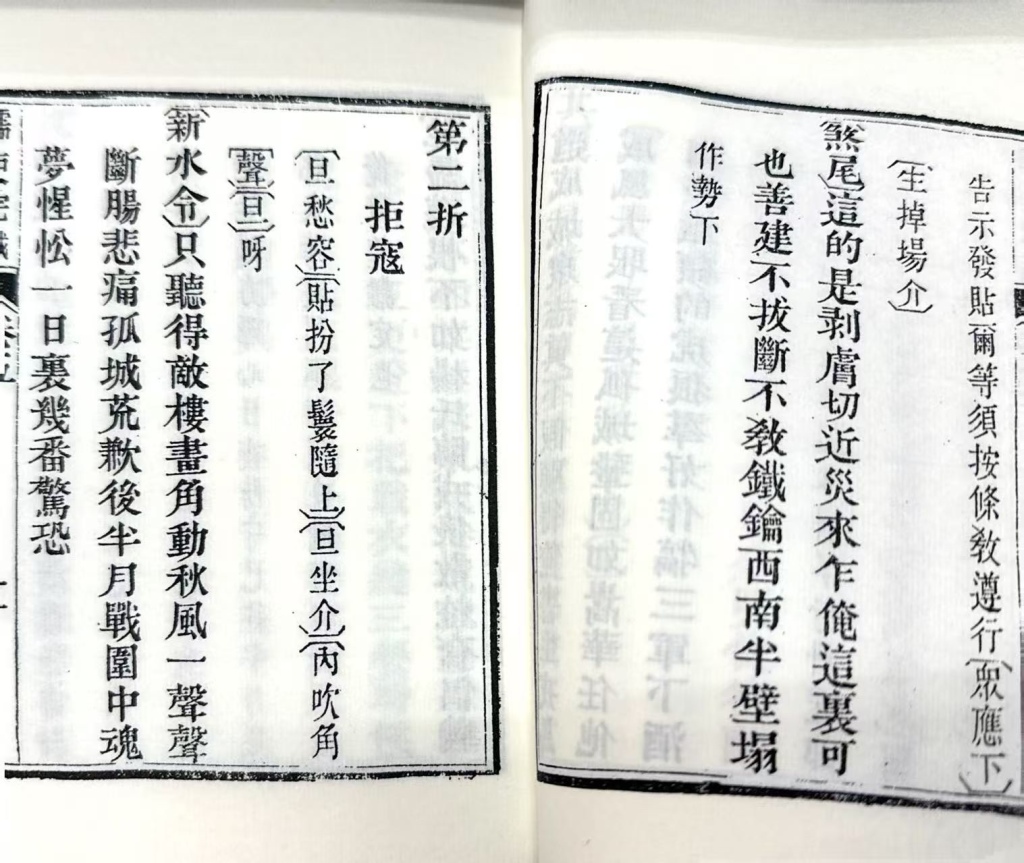 告示發貼爾等須按條敎遵行〔眾應下〕
〔生掉場介〕
〔煞尾〕這的是剥膚切近災來乍俺這裏可
也善建不拔斷不敎鐵鑰西南半壁塌
作勢下
第二折
拒寇
〔旦愁容〕〔貼扮了鬟隨上〕〔旦坐介〕〔內吹角
聲〕〔旦〕呀
〔新水令〕只聽得敵樓畫角動秋風一聲聲
斷腸悲痛孤城荒歉後半月戰圍中魂
夢惺忪一日裏幾番驚恐